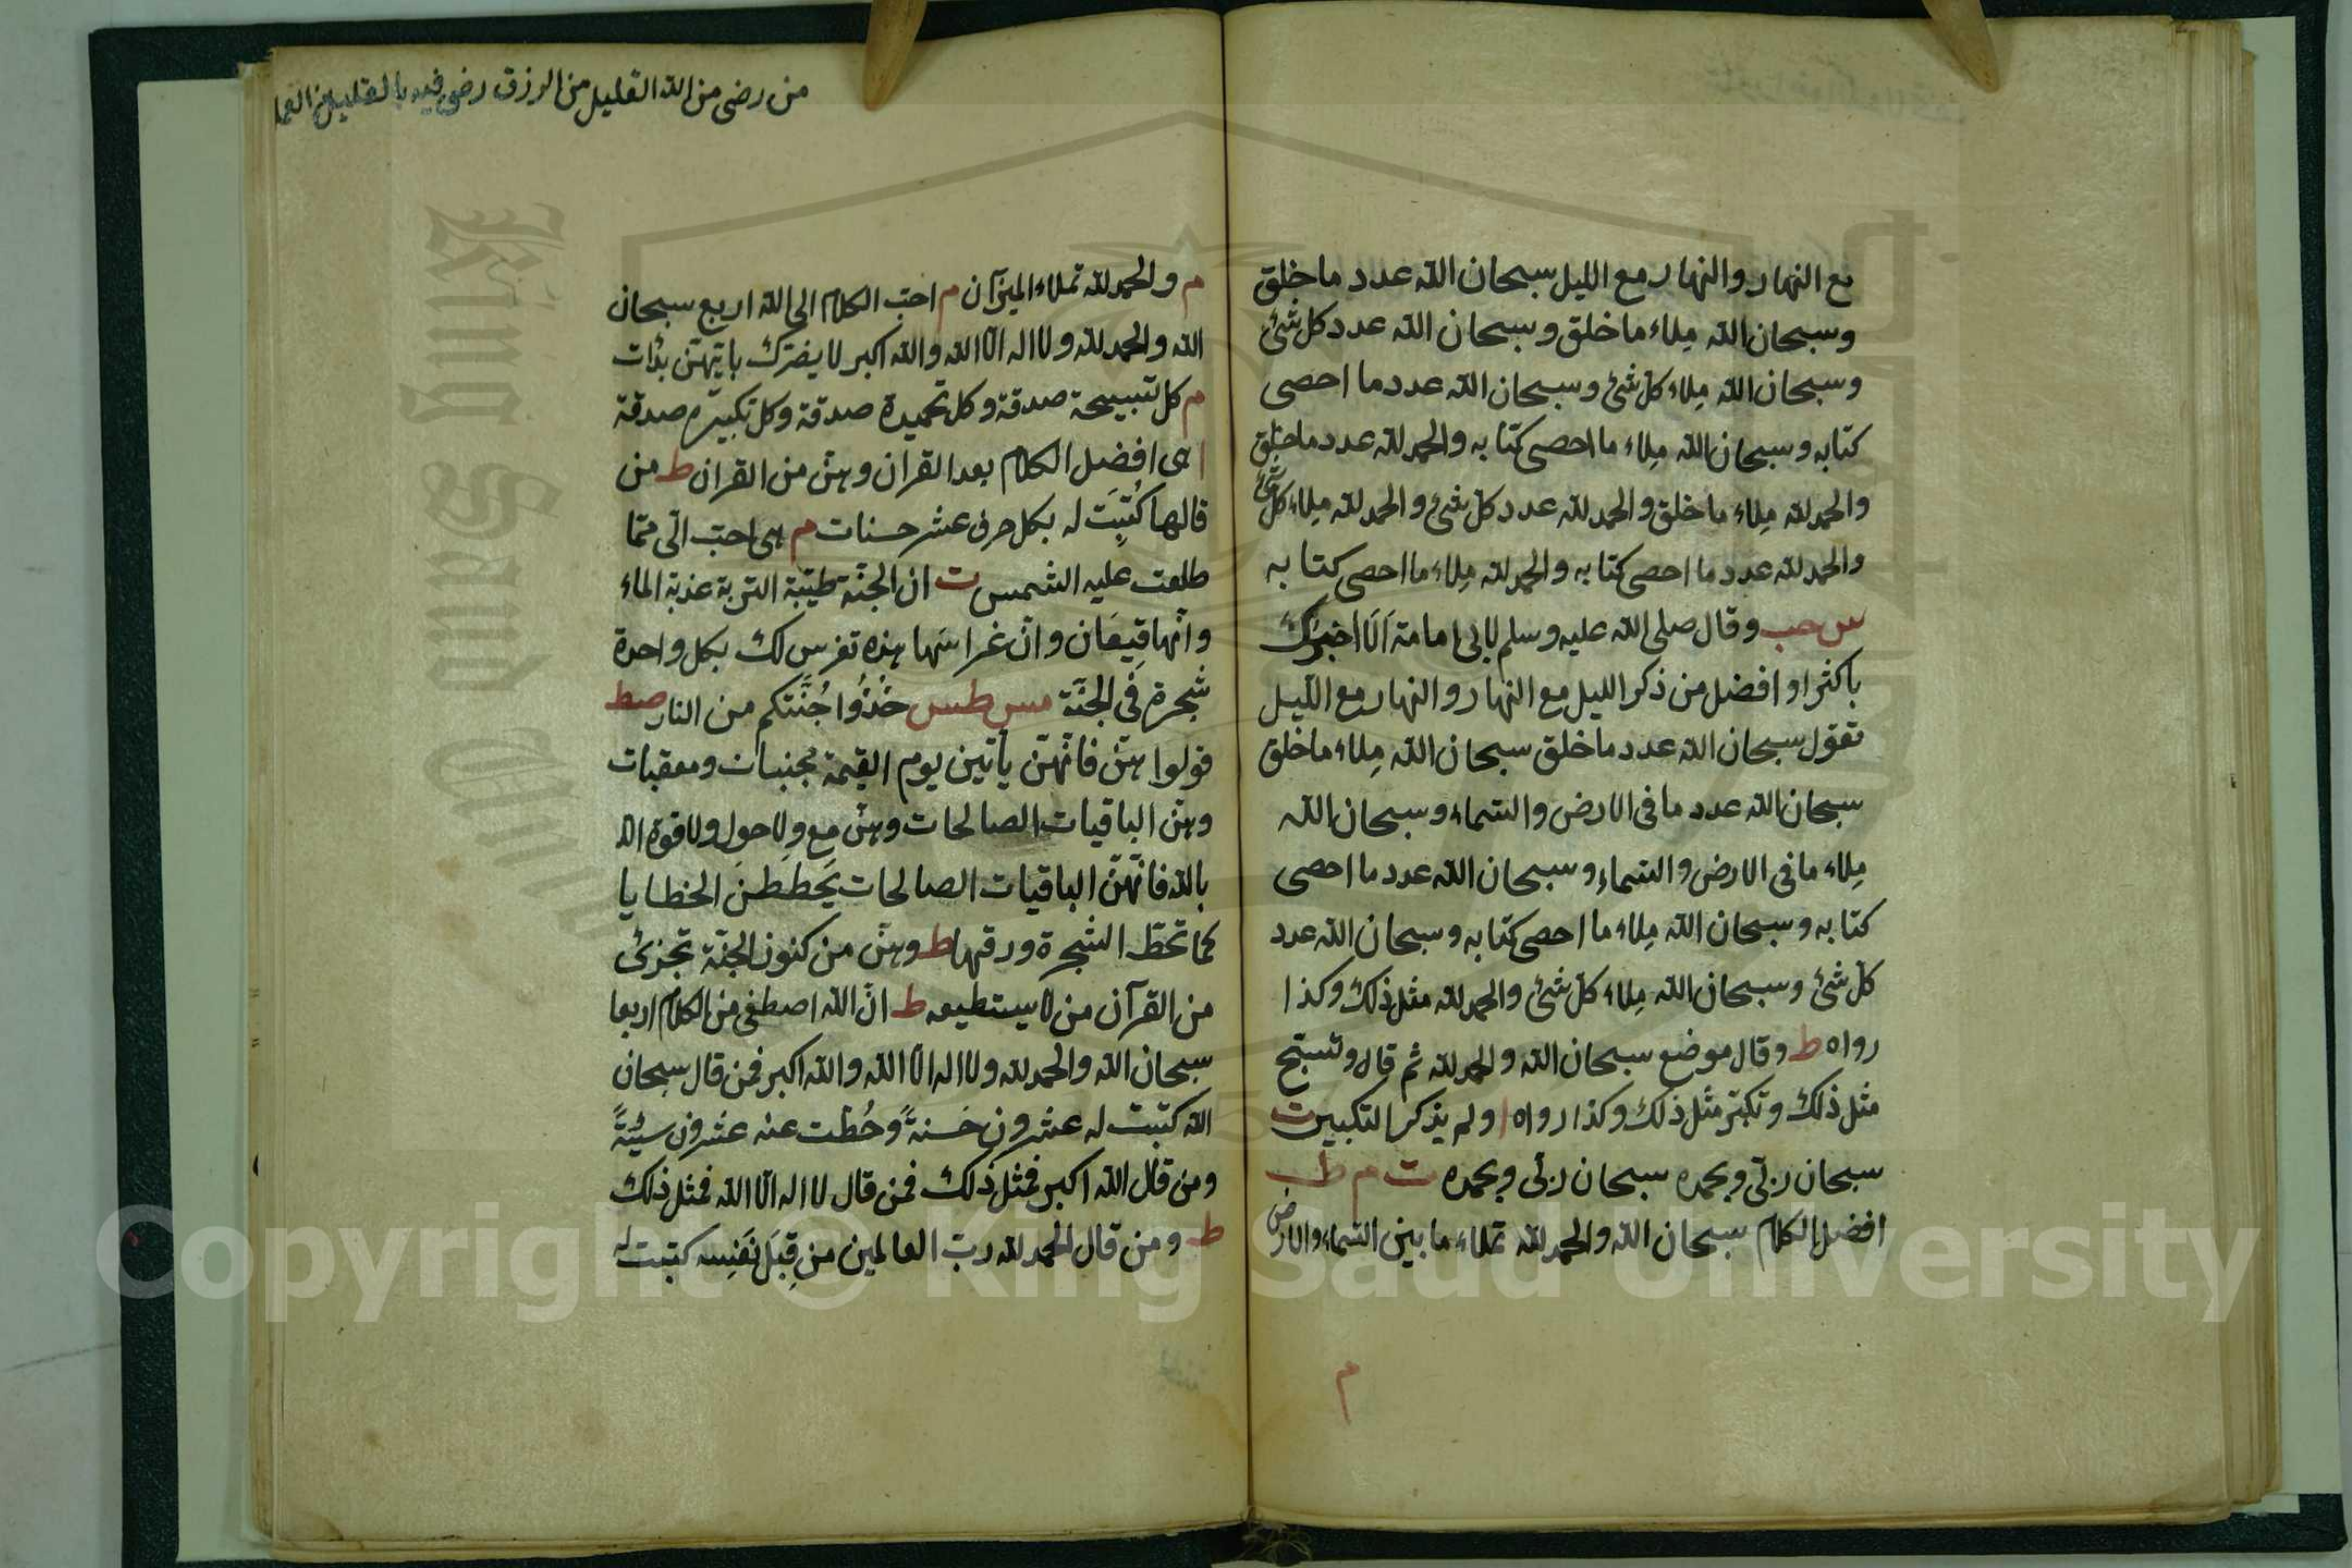 مع النهار والنهار مع الليل سبحان الله عدد ما خلق
وسبحان الله مِلاء ما خلق وسبحان الله عدد كل شئ
وسبحان الله مِلاء كل شئ وسبحان الله عدد ما احصى
كتابه وسبحان الله مِلاء ما احصى كتابه والحمد لله عدد ما خلق
والحمد لله مِلاء ما خلق والحمد لله عدد كل شئ والحمد لله مِلاء كل شئ
والحمد لله عدد ما احصى كتابه والحمد لله مِلاء ما احصى كتابه
س حب وقال صلى الله عليه وسلم لابى امامة اَلَا اخبرك
باكثر او افضل من ذكر الليل مع النهار والنهار مع الليل
تقول سبحان الله عدد ما خلق سبحان الله مِلاء ما خلق
سبحان الله عدد ما فى الارض والسماء وسبحان الله
مِلاء ما فى الارض والسماء وسبحان الله عدد ما احصى
كتابه وسبحان الله مِلاء ما احصى كتابه وسبحان الله عدد
كل شئ وسبحان الله مِلاء كل شئ والحمد لله مثل ذلك وكذا
رواه ط وقال موضع سبحان الله والحمد لله ثم قال وتسبح
مثل ذلك وتكبر مثل ذلك وكذا رواه ا ولم يذكر التكبير ت
سبحان ربّى وبحمده سبحان ربّى وبحمده ت م ط
افضل الكلام سبحان الله والحمد لله تملاء ما بين السماء والارض
م
من رضى من الله القليل من الرزق رضى فيه بالقليل من العمل
م والحمد لله تملاء الميزان م احبّ الكلام الى الله اربع سبحان
الله والحمد لله ولا اله الّا الله والله اكبر لا يضرّك بايّهنّ بدأت
م كل تسبيحة صدقة وكل تحميدة صدقة وكل تكبيرة صدقة
ا هى افضل الكلام بعد القران وهنّ من القران ط من
قالها كُتِبَت له بكل حرف عشر حسنات م هى احبّ الىّ ممّا
طلعت عليه الشمس ت ان الجنّة طيّبة التربة عذبة الماء
وانّها قِيعَان وانّ غراسَها هذه تغرس لك بكل واحدة
شجرة فى الجنّة مس طس خُذُوا جُنَّتكم من النار صط
قولوا هنّ فانّهنّ يأتين يوم القيمة مجنبات ومعقبات
وهنّ الباقيات الصالحات وهنّ مع ولا حول ولا قوة الا
بالله فانّهنّ الباقيات الصالحات يَحططنَ الخطايا
كما تحطّ الشجرة ورقها ط وهنّ من كنوز الجنّة تجزئ
من القرآن من لا يستطيعه ط انّ الله اصطفى من الكلام اربعا
سبحان الله والحمد لله ولا اله الّا الله والله اكبر فمن قال سبحان
الله كتبت له عشرون حَسنةً وحُطّت عنه عشرون سيّئةً
ومن قال الله اكبر فمثل ذلك فمن قال لا اله الّا الله فمثل ذلك
ط ومن قال الحمد لله ربّ العالمين من قِبَل نَفسِه كتبت له
King Saud Univ
Copyright © King Saud University